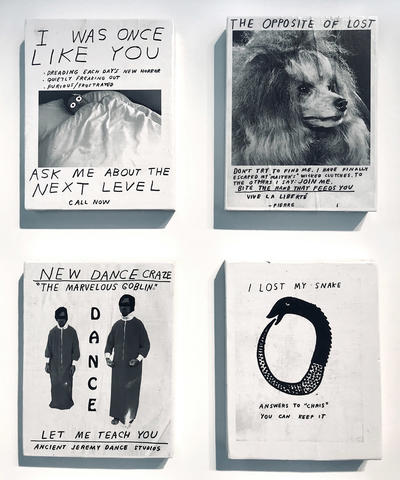 I WAS ONCE
LIKE YOU
· DREADING EACH DAY'S NEW HORROR
· QUIETLY FREAKING OUT
· FURIOUS/FRUSTRATED
ASK ME ABOUT THE
NEXT LEVEL
CALL NOW
THE OPPOSITE OF LOST
DON'T TRY TO FIND ME. I HAVE FINALLY
ESCAPED MY "MASTER'S" WICKED CLUTCHES. TO
THE OTHERS I SAY: JOIN ME.
BITE THE HAND THAT FEEDS YOU
VIVE LA LIBERTÉ
- PIERRE
NEW DANCE CRAZE
"THE MARVELOUS GOBLIN."
DANCE
LET ME TEACH YOU
ANCIENT JEREMY DANCE STUDIOS
I LOST MY SNAKE
ANSWERS TO "CHRIS"
YOU CAN KEEP IT